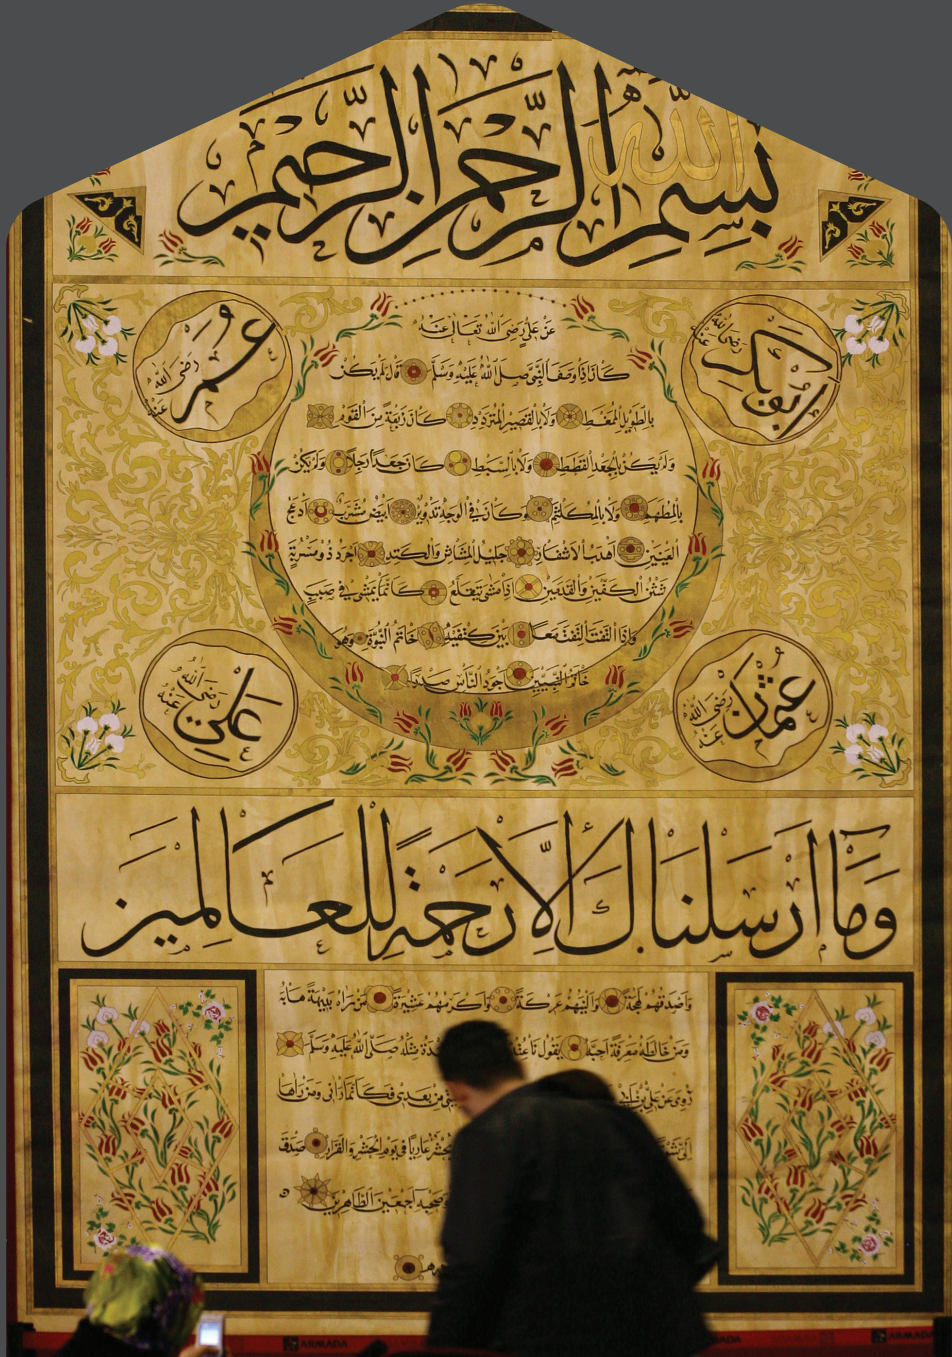 بِسْمِ اللّٰهِ الرَّحْمٰنِ الرَّحِيمِ
ابو بكر رضى الله عنه
عمر رضى الله عنه
عن على رضى الله تعالى عنه
كان اذا وصف النبى صلى الله عليه وسلم قال لم يكن
بالطويل الممغط ولا بالقصير المتردد كان ربعة من القوم
ولم يكن بالجعد القطط ولا بالسبط كان جعدا رجلا ولم يكن
بالمطهم ولا بالمكلثم وكان فى الوجه تدوير ابيض مشرب ادعج
العينين اهدب الاشفار جليل المشاش والكتد اجرد ذو مسربة
شثن الكفين والقدمين اذا مشى يتقلع كانما يمشى فى صبب
واذا التفت التفت معا بين كتفيه خاتم النبوة وهو
خاتم النبيين اجود الناس صدرا
عثمان رضى الله عنه
على رضى الله عنه
وَمَا اَرْسَلْنَاكَ اِلَّا رَحْمَةً لِلْعَالَمِينَ
واصدقهم لهجة والينهم عريكة واكرمهم عشيرة من راه بديهة هابه
ومن خالطه معرفة احبه يقول ناعته مثله صلى الله عليه وسلم
روى عن على بن من بعدى فكانما رانى ومن راها
عاريا فى يوم الحشر والقرار صدق
اجمعين الطاهرين
ARMADA
ARMADA